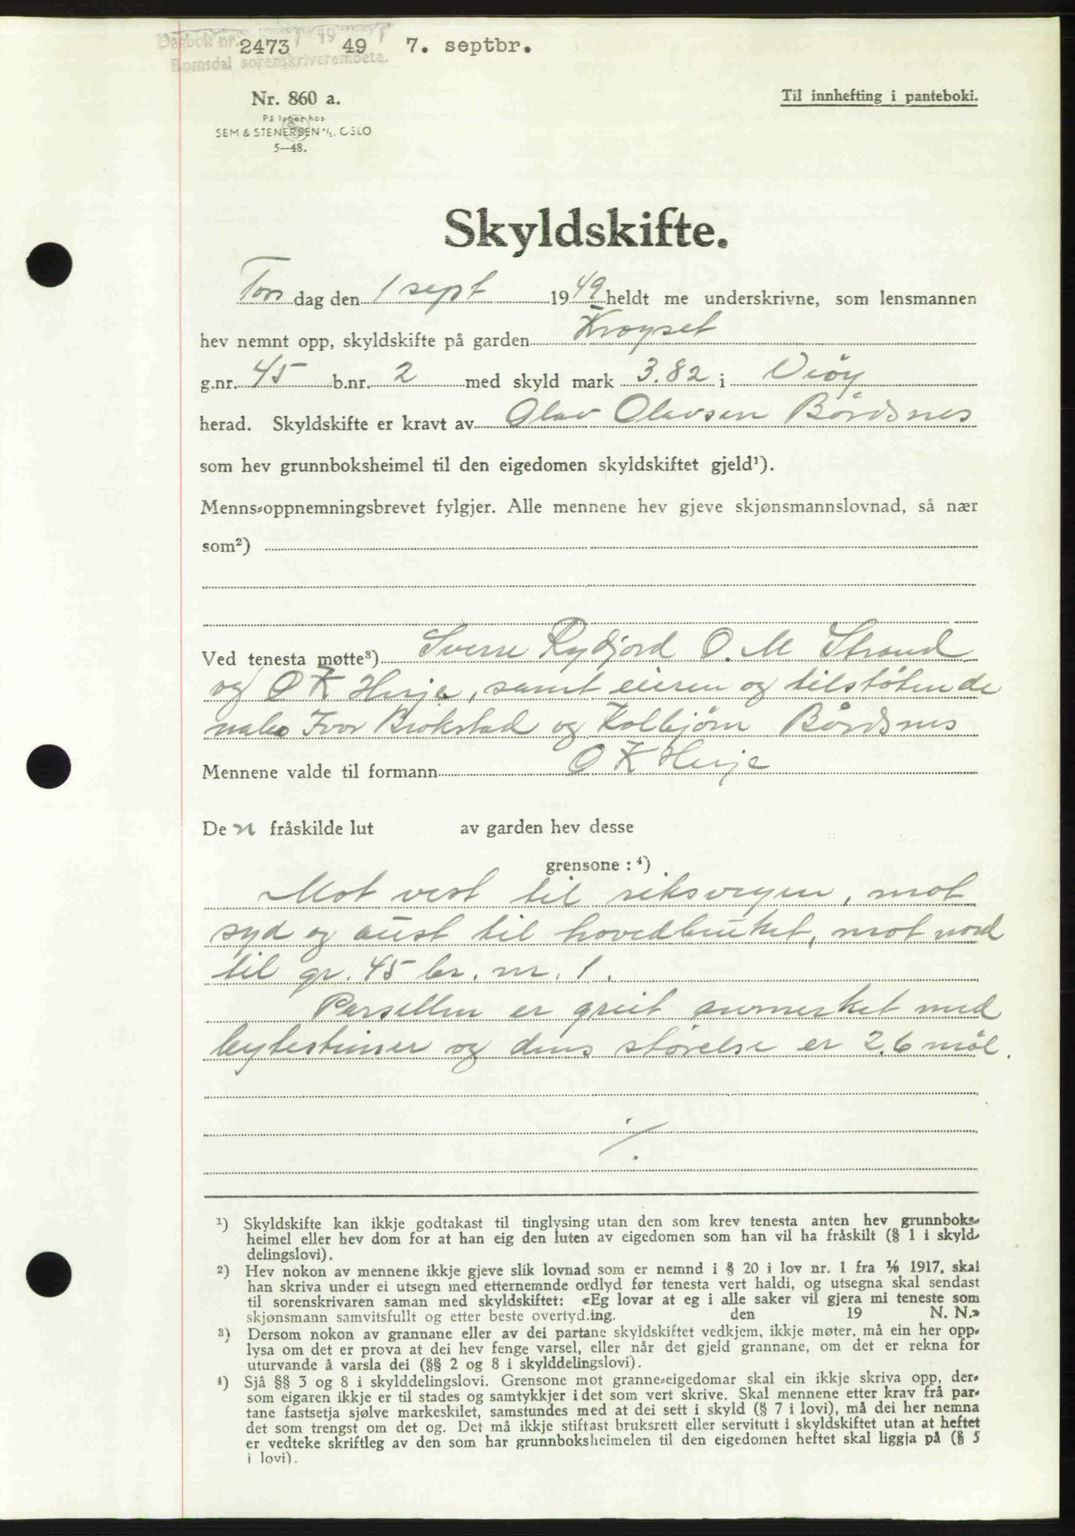 Dagbok nr. 2473 1949 7. septbr.
Romsdal sorenskriverembete.
Nr. 860 a.
Til innhefting i panteboki.
På lager hos
SEM & STENERSEN A/S. OSLO
5—48.
Skyldskifte.
Tors dag den 1 sept 1949 heldt me underskrivne, som lensmannen
hev nemnt opp, skyldskifte på garden Kroyset
g.nr. 45 b.nr. 2 med skyld mark 3.82 i Vrøy
herad. Skyldskifte er kravt av Olav Olavsen Bårdsnes
som hev grunnboksheimel til den eigedomen skyldskiftet gjeld¹).
Menns-oppnemningsbrevet fylgjer. Alle mennene hev gjeve skjønsmannslovnad, så nær
som²)
Ved tenesta møtte³) Sverre Rydjord O. M Strand
og O K Herje, samt eieren og tilstøtende
nabo Ivar Brokstad og Kolbjørn Bårdsnes
Mennene valde til formann O K Herje
De n fråskilde lut av garden hev desse
grensone : ⁴)
Mot vest til riksvegen, mot
syd og aust til hovedbruket, mot nord
til gr. 45 br. nr. 1.
Parsellen er greit avmerket med
bytesteiner og dens størelse er 2.6 mål.
⁒
¹) Skyldskifte kan ikkje godtakast til tinglysing utan den som krev tenesta anten hev grunnboks-
heimel eller hev dom for at han eig den luten av eigedomen som han vil ha fråskilt (§ 1 i skyld-
delingslovi).
²) Hev nokon av mennene ikkje gjeve slik lovnad som er nemnd i § 20 i lov nr. 1 fra ⅙ 1917, skal
han skriva under ei utsegn med etternemnde ordlyd før tenesta vert haldi, og utsegna skal sendast
til sorenskrivaren saman med skyldskiftet: «Eg lovar at eg i alle saker vil gjera mi teneste som
skjønsmann samvitsfullt og etter beste overtyding. den 19 N. N.»
³) Dersom nokon av grannane eller av dei partane skyldskiftet vedkjem, ikkje møter, må ein her opp-
lysa om det er prova at dei hev fenge varsel, eller når det gjeld grannane, om det er rekna for
uturvande å varsla dei (§§ 2 og 8 i skylddelingslovi).
⁴) Sjå §§ 3 og 8 i skylddelingslovi. Grensone mot granne-eigedomar skal ein ikkje skriva opp, der-
som eigaren ikkje er til stades og samtykkjer i det som vert skrive. Skal mennene etter krav frå par-
tane fastsetja sjølve markeskilet, samstundes med at dei sett i skyld (§ 7 i lovi), må dei her nemna
det som trengst om det og. Det må ikkje stiftast bruksrett eller servitutt i skyldskiftet utan at heftet
er vedteke skriftleg av den som har grunnboksheimelen til den eigedomen heftet skal liggja på (§ 5
i lovi).